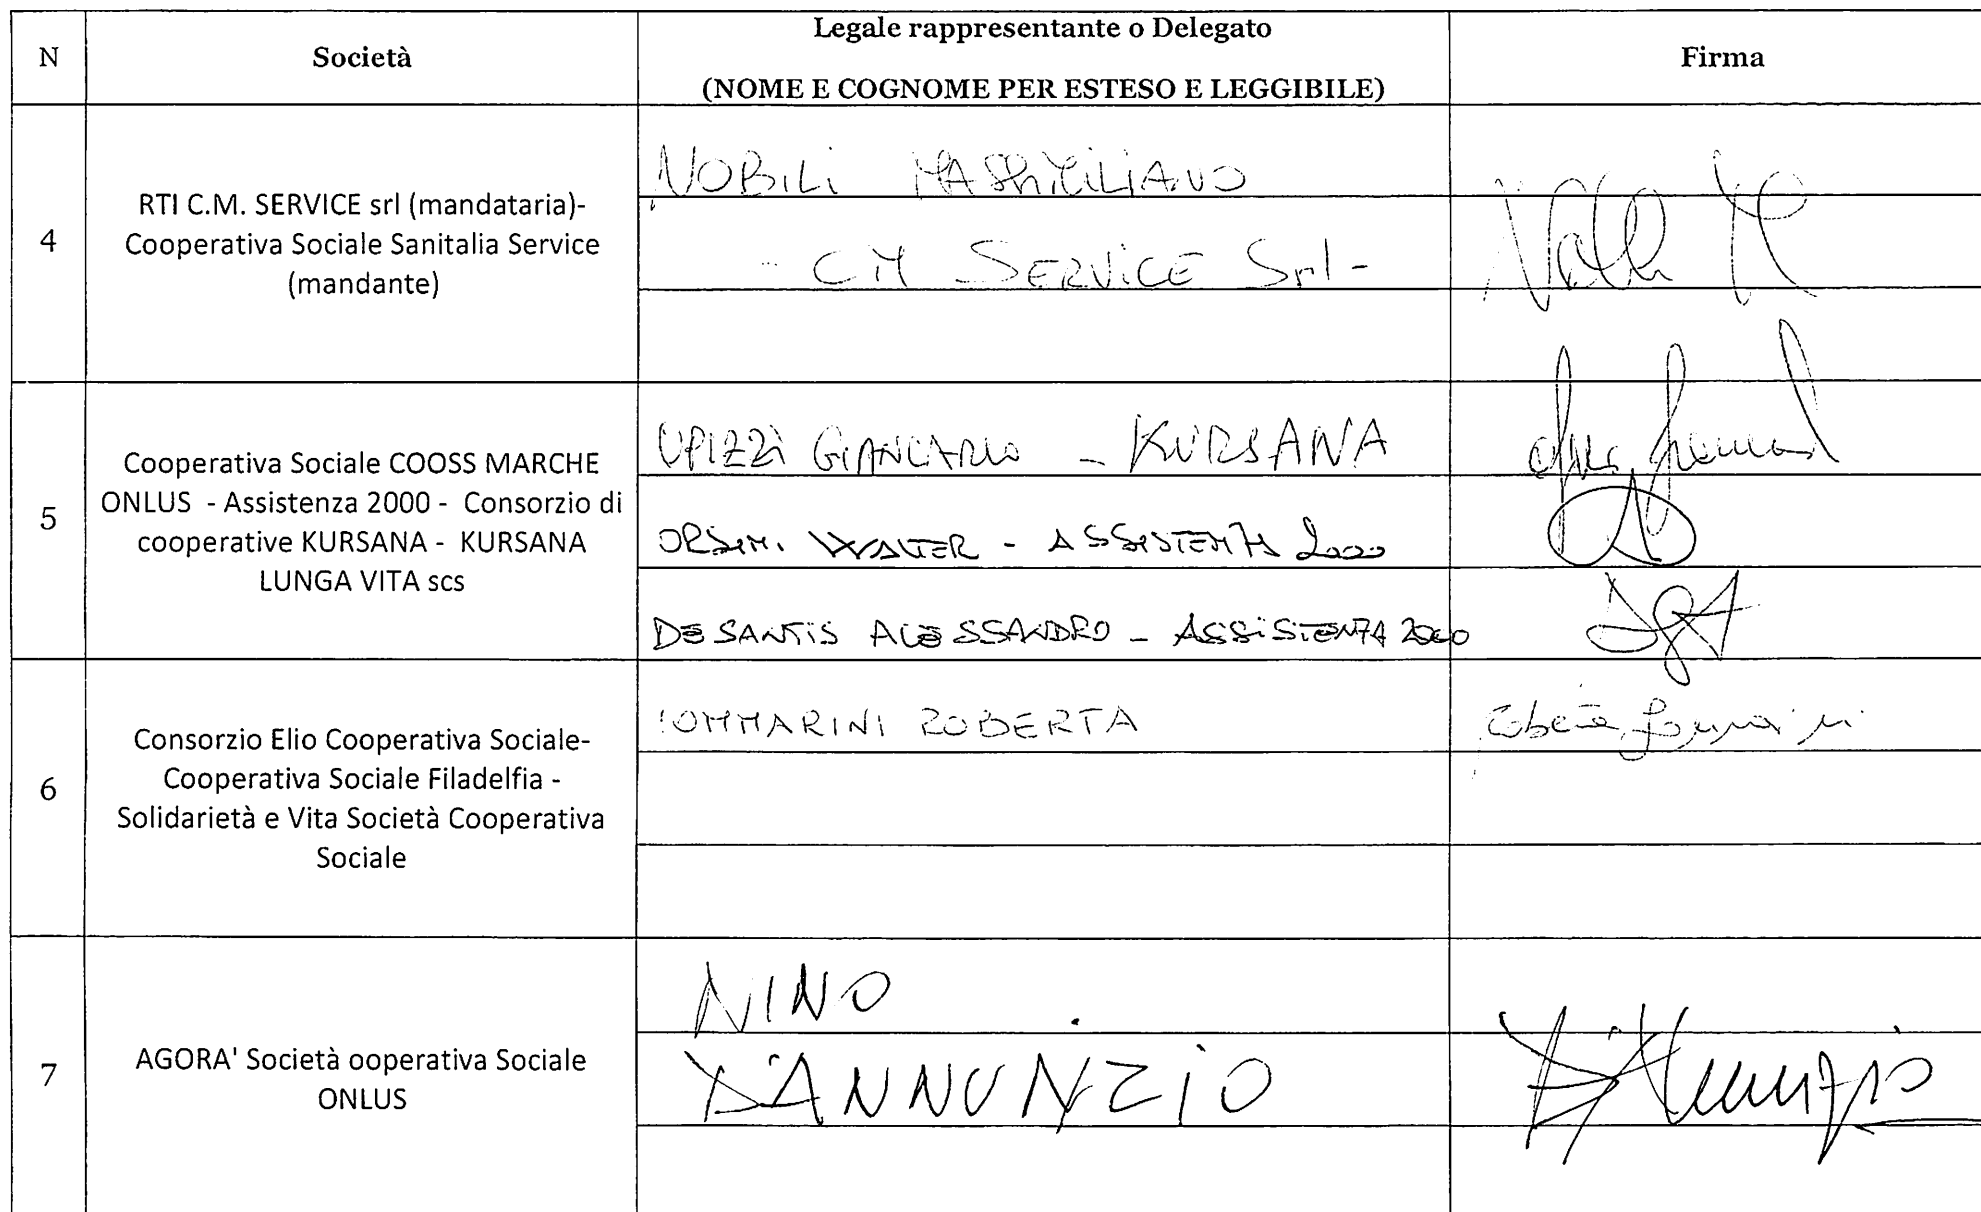 N
Società
Legale rappresentante o Delegato
(NOME E COGNOME PER ESTESO E LEGGIBILE)
Firma
4
RTI C.M. SERVICE srl (mandataria)-
Cooperativa Sociale Sanitalia Service
(mandante)
NOBILI MASSIMILIANO
- CM SERVICE Srl -
5
Cooperativa Sociale COOSS MARCHE
ONLUS - Assistenza 2000 - Consorzio di
cooperative KURSANA - KURSANA
LUNGA VITA scs
UPIZZI GIANCARLO - KURSANA
ORSINI WALTER - ASSISTENZA 2000
DE SANTIS ALESSANDRO - ASSISTENZA 2000
6
Consorzio Elio Cooperativa Sociale-
Cooperativa Sociale Filadelfia -
Solidarietà e Vita Società Cooperativa
Sociale
ROBERTA
7
AGORA' Società ooperativa Sociale
ONLUS
NINO
D'ANNUNZIO
D'Annunzio